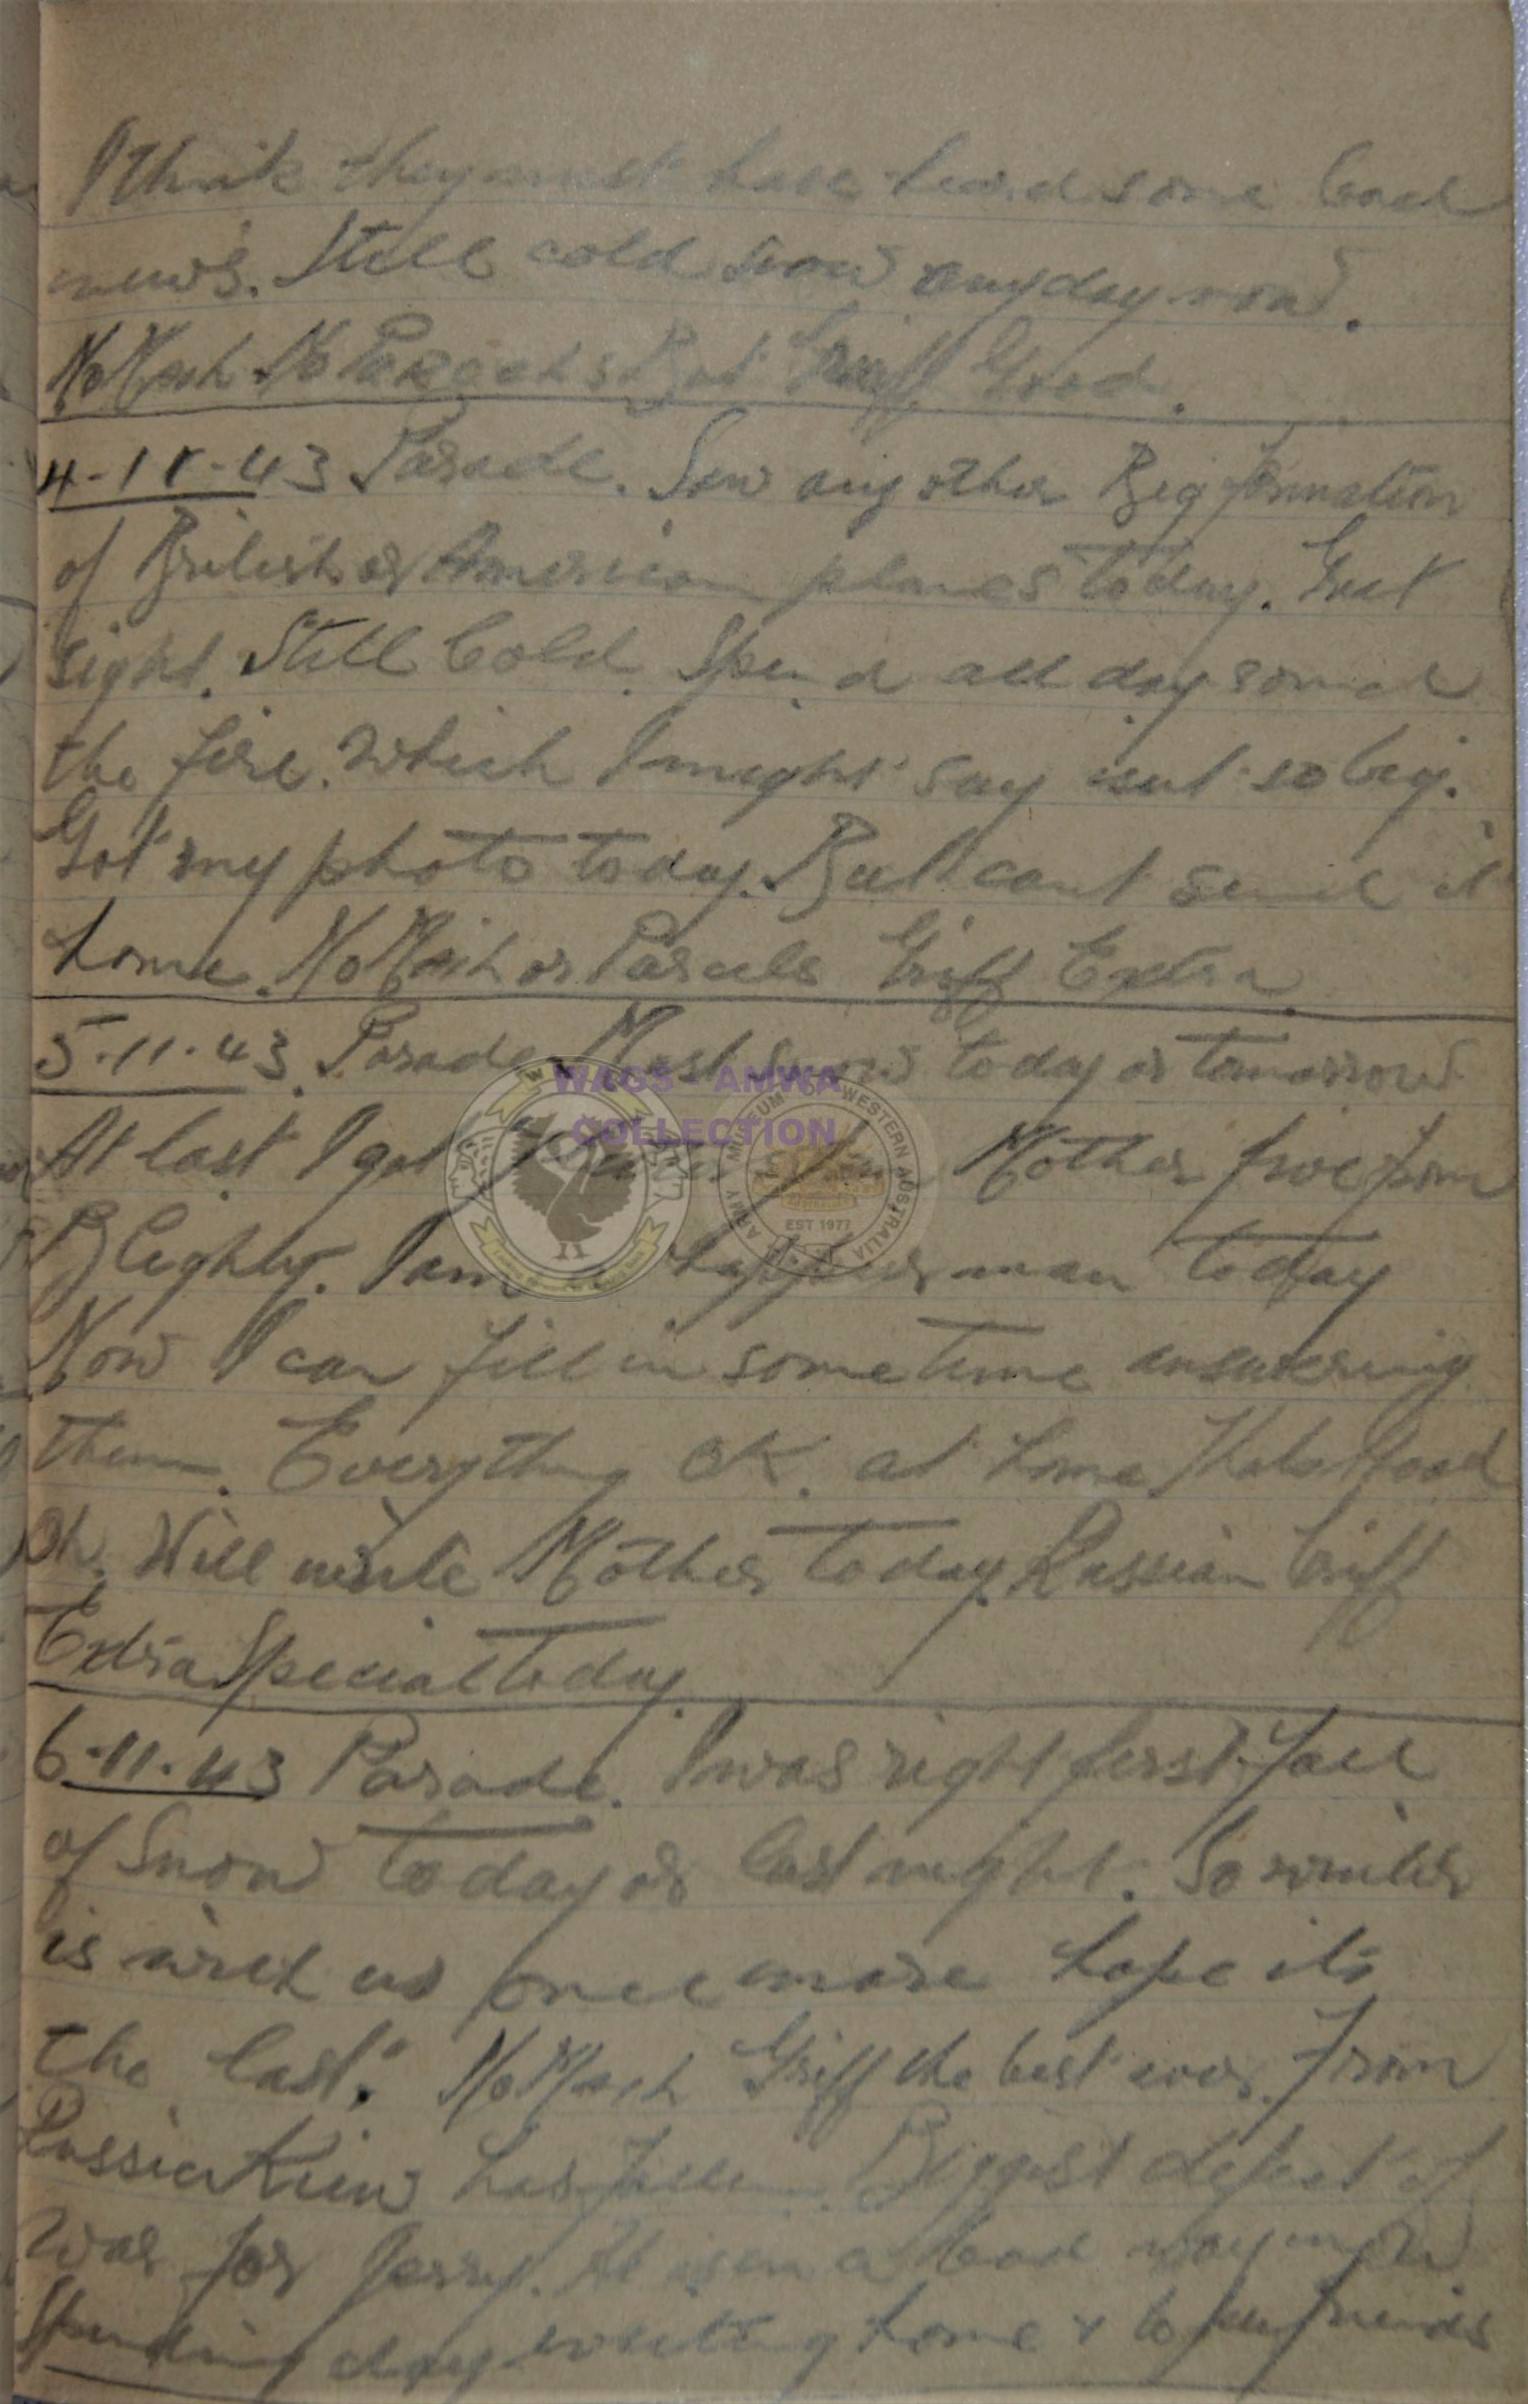 I think they must have heard some bad
news. Still cold snow anyday now.
No Mail No Parcels But Griff Good.
4-11-43 Parade. Saw another Big formation
of British or American planes today. Great
sight. Still Cold. Spend all day round
the fire. Which I might say isnt so big.
Got my photo today. But cant send it
home. No Mail or Parcels Griff Extra.
5-11-43. Parade. Must snow today or tomorrow
WAGS - AMWA
COLLECTION
MUSEUM OF WESTERN AUSTRALIA
ARMY
EST 1977
At last I got Mother five from
Blighty. I am a happier man today
Now I can fill in some time answering
them. Everything OK. at home Thats Good
oh. Will write Mother today. Russian Griff
Extra Special today.
6-11-43 Parade. I was right first fall
of Snow today or last night. So winter
is with us once more hope its
the last. No Mail Griff the best ever. From
Russia Kiev has fallen. Biggest defeat of
war for Jerry. He is in a bad way now.
Spending day writing home & to my friends